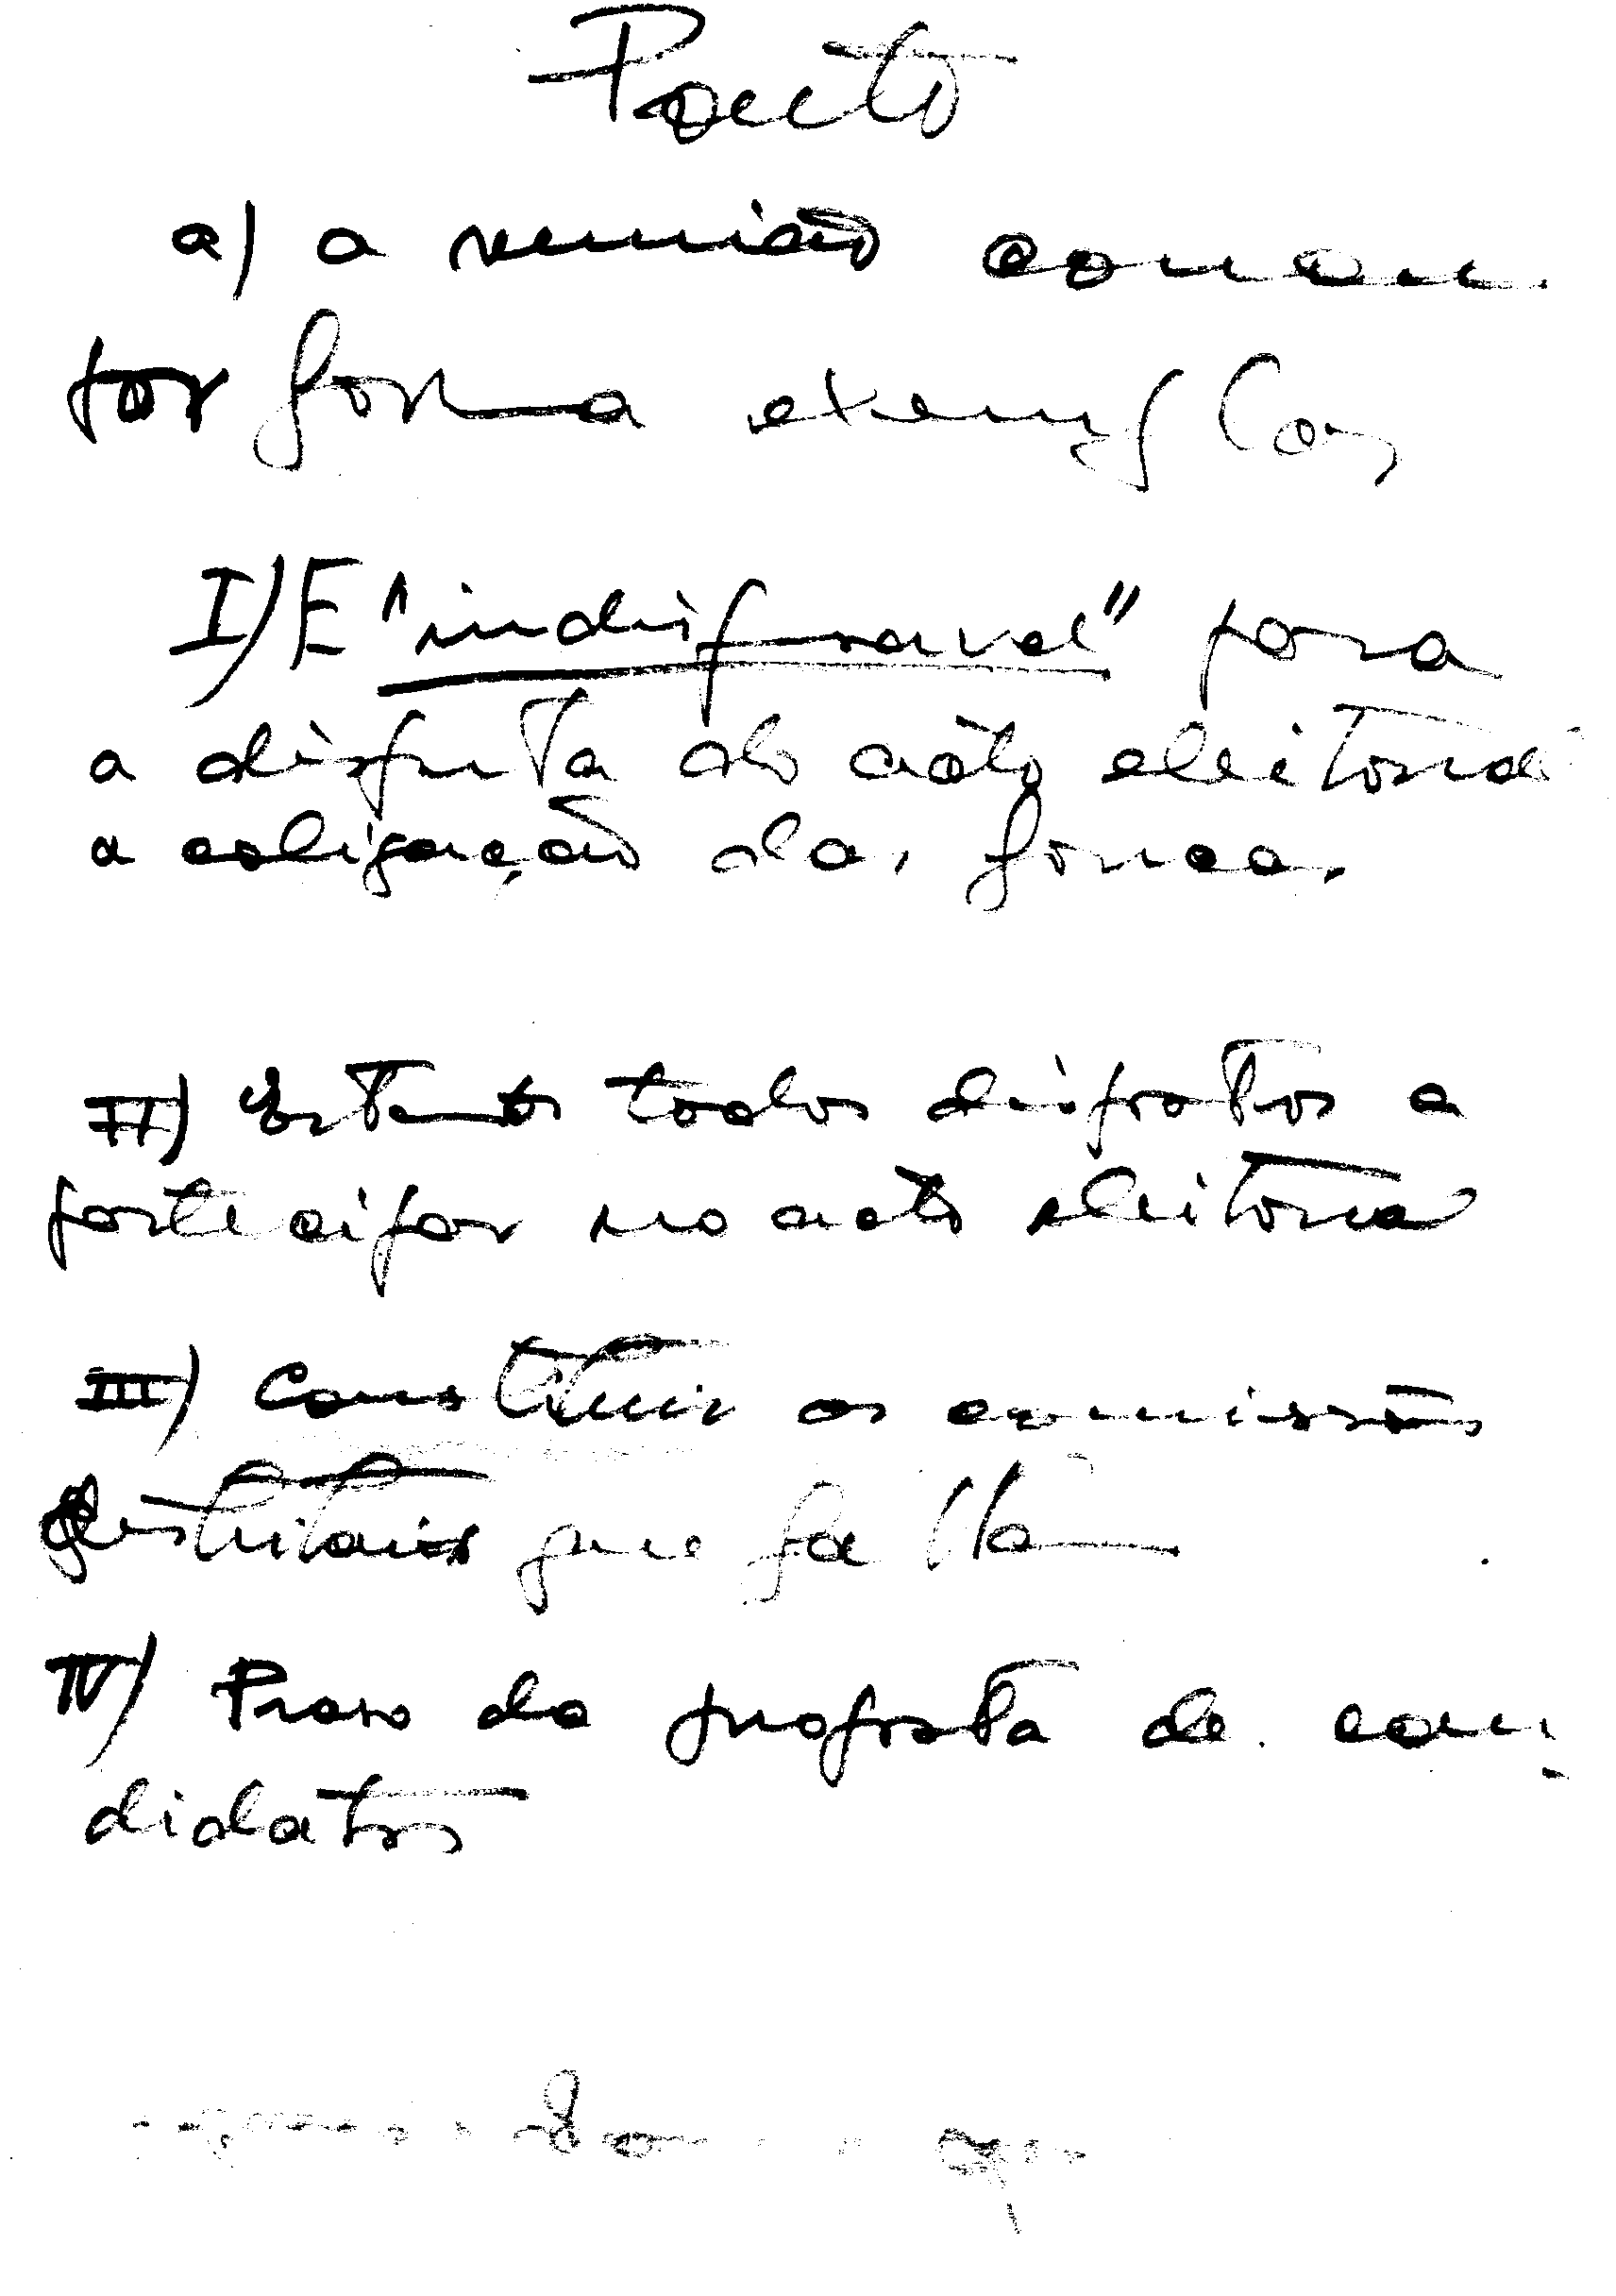 Pacto
a) a reunião correu
por forma exemplar,
I) É "indispensavel" para
a disputa do acto eleitoral
a coligação das forças.
II) Estamos todos dispostos a
participar no acto eleitoral
III) Constituir as comissões
distritais que faltam
IV) Prazo da proposta de can
didatos